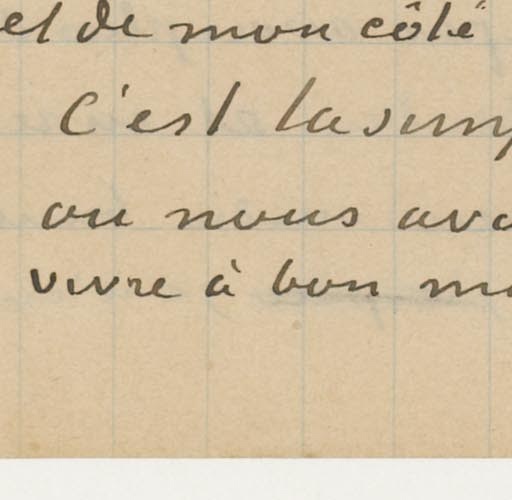 et de mon côté
C'est la sim
ou nous avo
vivre à bon m